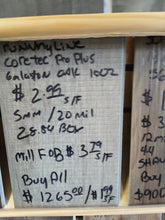 Coretec Pro Plus
Galveston Oak 1002
$2.99 S/F
5mm / 20 mil
28.84 Box
Mill FOB $3.79 S/F
Buy All
$1265.00 / $1.99 S/F
$
12m
44
SHAW
Buy
$900